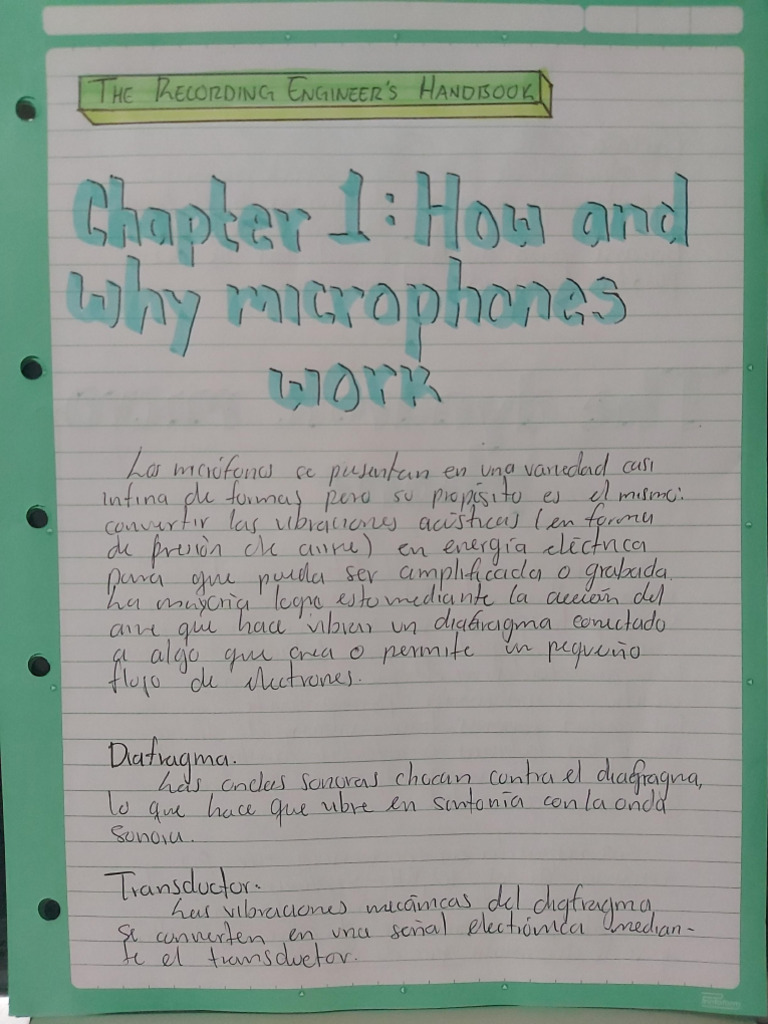 THE RECORDING ENGINEER'S HANDBOOK
Chapter 1: How and
why microphones
work
Los micrófonos se presentan en una variedad casi
infina de formas pero su propósito es el mismo:
convertir las vibraciones acústicas (en forma
de presión de aire) en energía eléctrica
para que pueda ser amplificada o grabada.
La mayoría logra esto mediante la acción del
aire que hace vibrar un diafragma conectado
a algo que crea o permite un pequeño
flujo de electrones.
Diafragma.
Las ondas sonoras chocan contra el diafragma,
lo que hace que vibre en sintonía con la onda
sonora.
Transductor.
Las vibraciones mecánicas del diafragma
se converten en una señal electrónica median-
te el transductor.